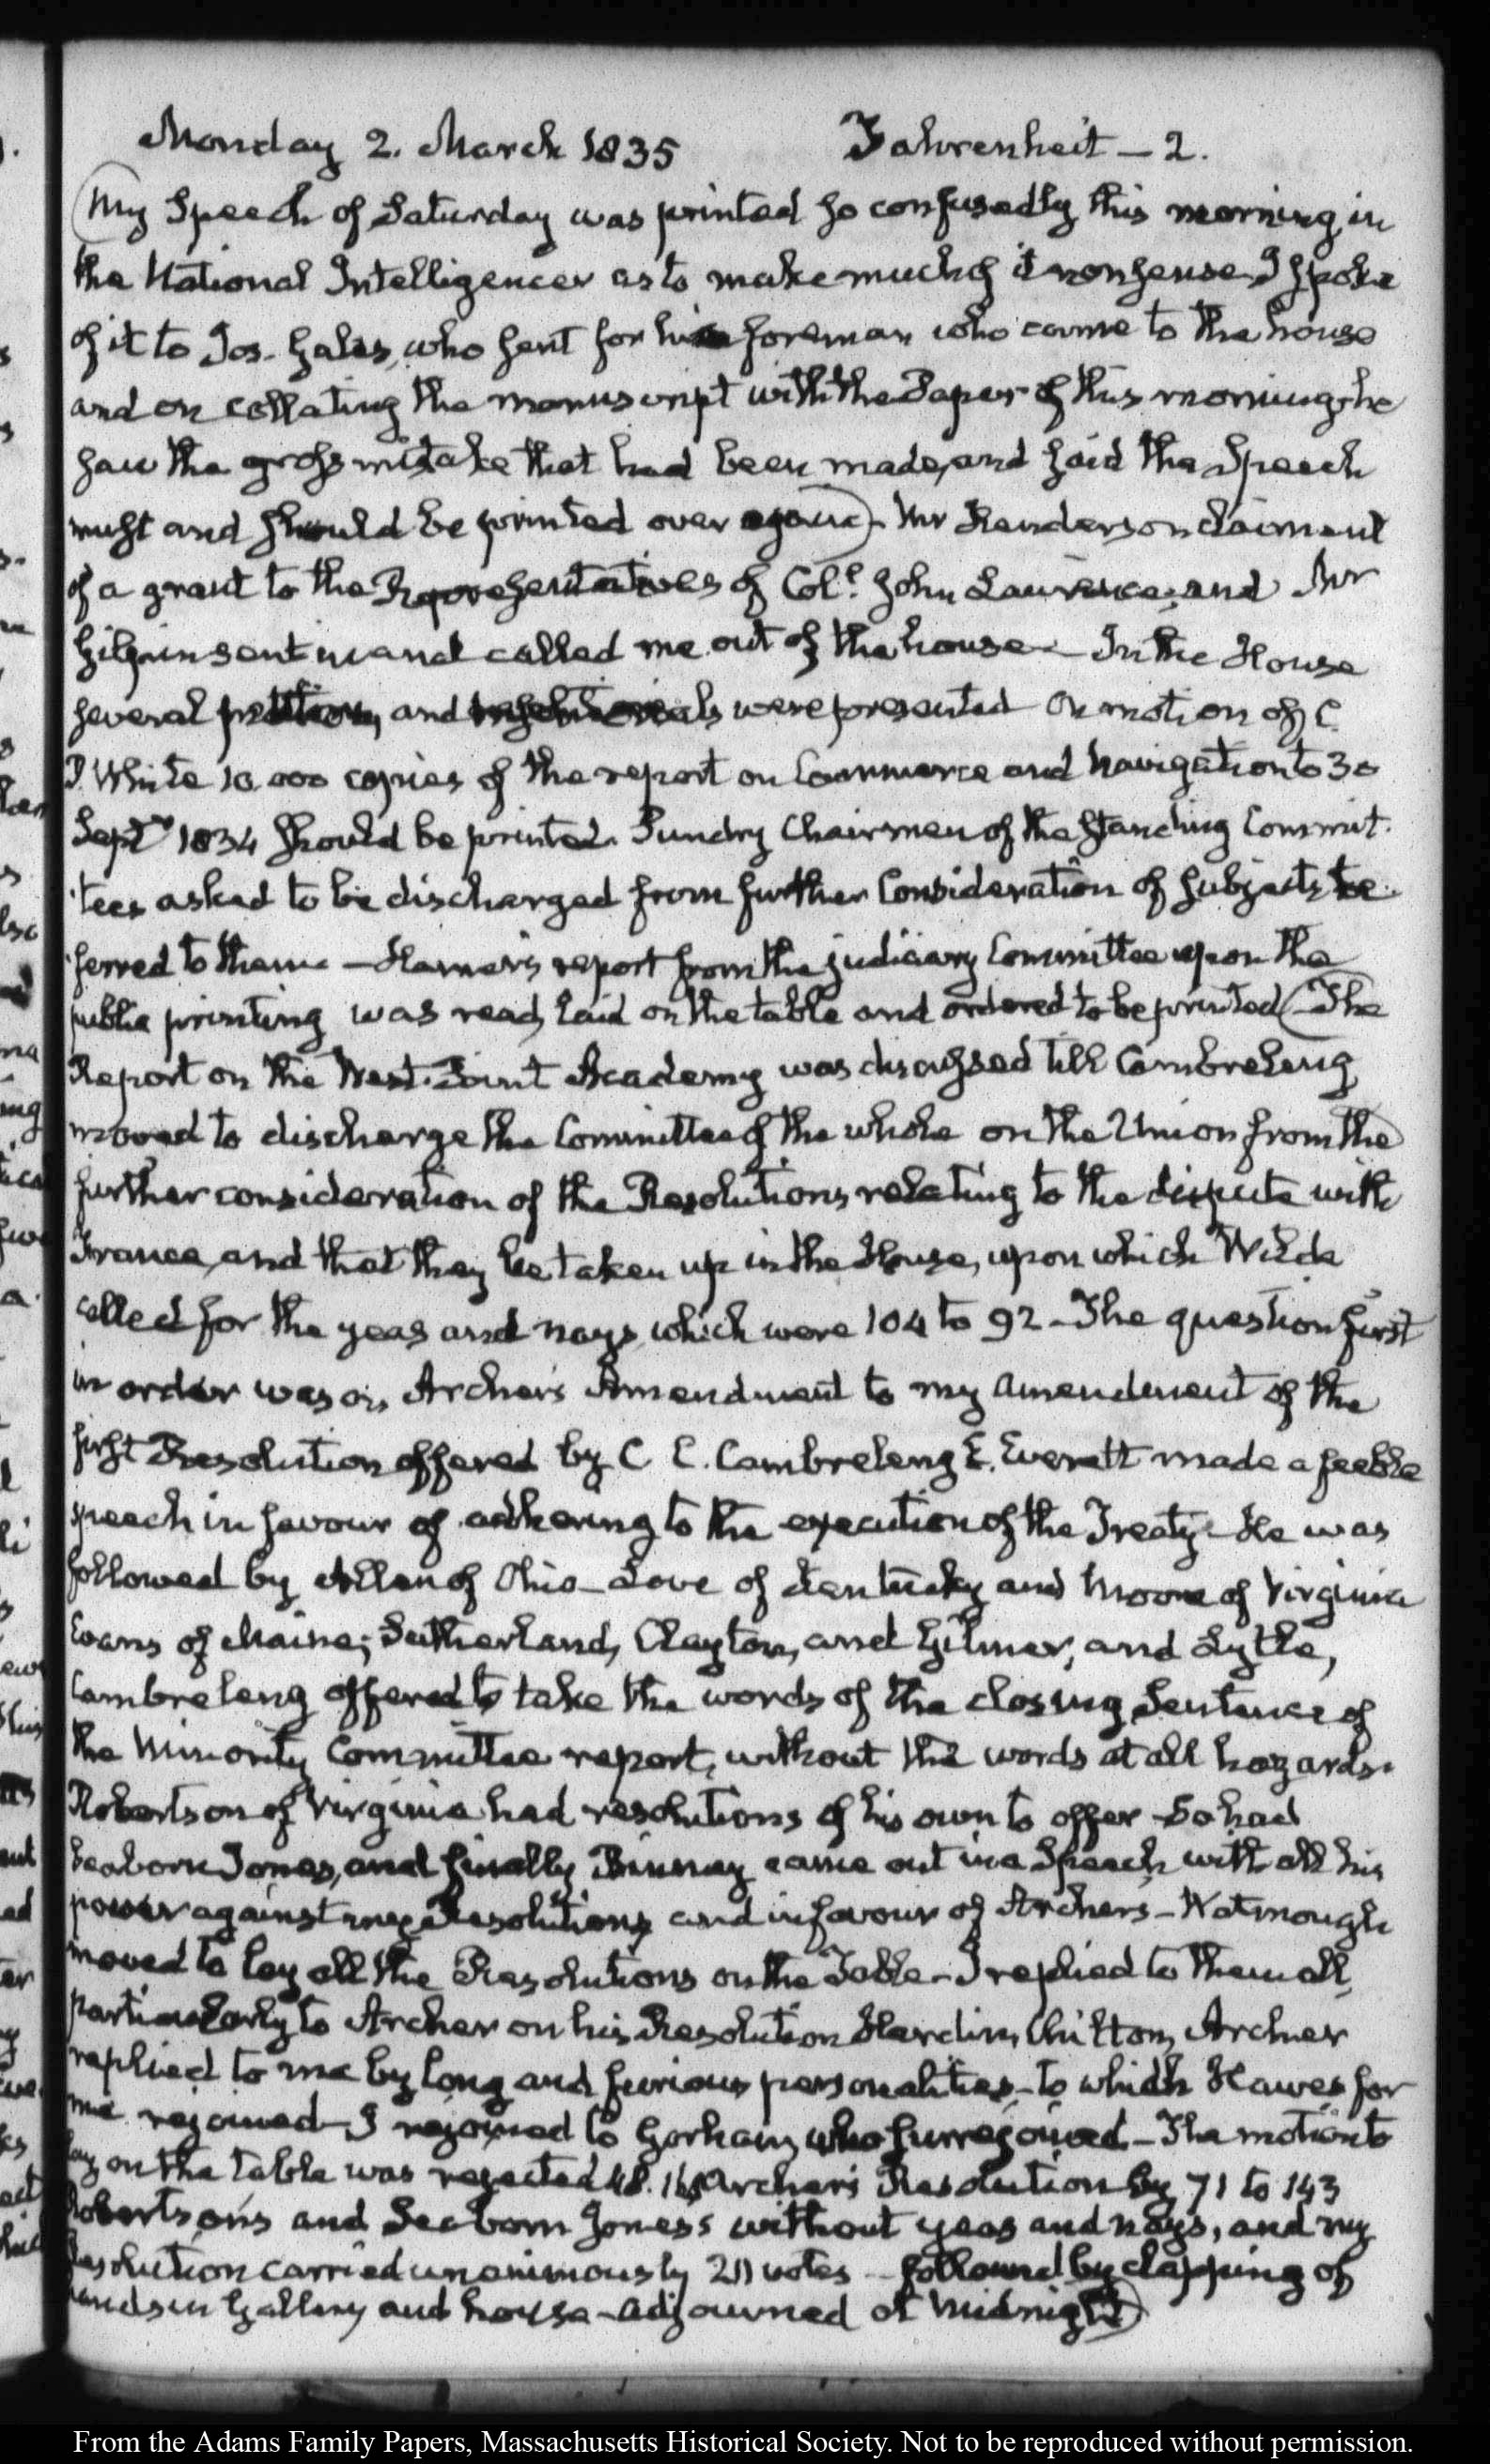 Monday 2. March 1835 Fahrenheit – 2.
(My Speech of Saturday was printed so confusedly this morning in
the National Intelligencer as to make much of it nonsense. I spoke
of it to Jos. Gales, who sent for his foreman who came to the house
and on collating the manuscript with the Paper of this morning he
saw the gross mistake that had been made, and said the Speech
must and should be printed over again) – Mr Henderson claimant
of a grant to the Representatives of Coll. John Laurence, and Mr
Gilpin sent in and called me out of the house – In the House
several petitions, and were presented On motion of C.
P. White 10.000 copies of the report on Commerce and Navigation to 30
Septr. 1834 should be printed. Sundry Chairmen of the Standing Commit-
tees asked to be discharged from further Consideration of subjects re-
ferred to them – Hamer's report from the judiciary Committee upon the
public printing was read, laid on the table and ordered to be printed (The
Report on the West-Point Academy was discussed till Cambreleng
moved to discharge the Committee of the whole on the Union from the
further consideration of the Resolutions relating to the dispute with
France, and that they be taken up in the House, upon which Wilde
called for the yeas and nays, which were 104 to 92 – The question first
in order was on Archer's Amendment to my amendment of the
first Resolution offered by C C. Cambreleng E. Everett made a feeble
speech in favour of adhering to the execution of the Treaty – He was
followed by Allen of Ohio – Love of Kentucky and Moore of Virginia
Evans of Maine; Sutherland, Clayton, and Gilmer, and Lytle,
Cambreleng offered to take the words of the closing Sentence of
the Minority Committee report, without the words at all hazards.
Robertson of Virginia had resolutions of his own to offer – So had
Seaborn Jones, and finally Binney came out in a Speech with all his
power against my Resolutions and in favour of Archers – Watmough
moved to lay all the Resolutions on the Table – I replied to them all,
particularly to Archer on his Resolution Hardin, Chilton, Archer
replied to me by long and furious personalities – to which Hawes for
me rejoined – I rejoined to Gorham, who surrejoined – The motion to
lay on the table was rejected 48. Archer's Resolution by 71 to 143
Robertson's and Seaborn Jones's without yeas and nays, and my
Resolution carried unanimously 211 votes – followed by clapping of
hands in Gallery and house – adjourned at Midnight)
From the Adams Family Papers, Massachusetts Historical Society. Not to be reproduced without permission.